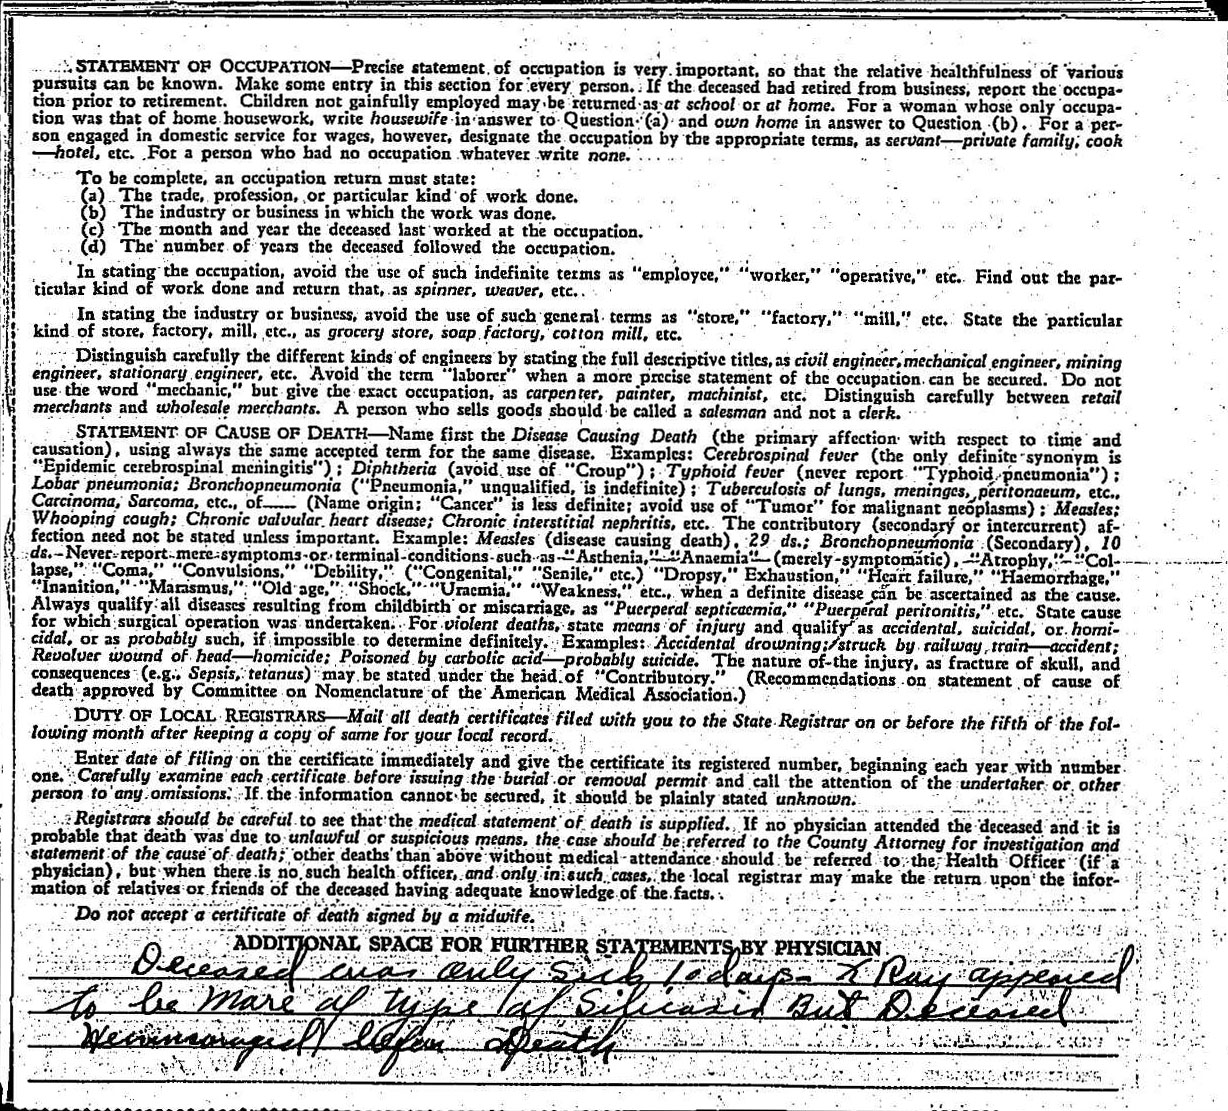 STATEMENT OF OCCUPATION—Precise statement of occupation is very important, so that the relative healthfulness of various
pursuits can be known. Make some entry in this section for every person. If the deceased had retired from business, report the occupa-
tion prior to retirement. Children not gainfully employed may be returned as at school or at home. For a woman whose only occupa-
tion was that of home housework, write housewife in answer to Question (a) and own home in answer to Question (b). For a per-
son engaged in domestic service for wages, however, designate the occupation by the appropriate terms, as servant—private family; cook
—hotel, etc. For a person who had no occupation whatever write none.
To be complete, an occupation return must state:
(a) The trade, profession, or particular kind of work done.
(b) The industry or business in which the work was done.
(c) The month and year the deceased last worked at the occupation.
(d) The number of years the deceased followed the occupation.
In stating the occupation, avoid the use of such indefinite terms as "employee," "worker," "operative," etc. Find out the par-
ticular kind of work done and return that, as spinner, weaver, etc.
In stating the industry or business, avoid the use of such general terms as "store," "factory," "mill," etc. State the particular
kind of store, factory, mill, etc., as grocery store, soap factory, cotton mill, etc.
Distinguish carefully the different kinds of engineers by stating the full descriptive titles, as civil engineer, mechanical engineer, mining
engineer, stationary engineer, etc. Avoid the term "laborer" when a more precise statement of the occupation can be secured. Do not
use the word "mechanic," but give the exact occupation, as carpenter, painter, machinist, etc. Distinguish carefully between retail
merchants and wholesale merchants. A person who sells goods should be called a salesman and not a clerk.
STATEMENT OF CAUSE OF DEATH—Name first the Disease Causing Death (the primary affection with respect to time and
causation), using always the same accepted term for the same disease. Examples: Cerebrospinal fever (the only definite synonym is
"Epidemic cerebrospinal meningitis"); Diphtheria (avoid use of "Croup"); Typhoid fever (never report "Typhoid pneumonia");
Lobar pneumonia; Bronchopneumonia ("Pneumonia," unqualified, is indefinite); Tuberculosis of lungs, meninges, peritonaeum, etc.,
Carcinoma, Sarcoma, etc., of—— (Name origin; "Cancer" is less definite; avoid use of "Tumor" for malignant neoplasms); Measles;
Whooping cough; Chronic valvular heart disease; Chronic interstitial nephritis, etc. The contributory (secondary or intercurrent) af-
fection need not be stated unless important. Example: Measles (disease causing death), 29 ds.; Bronchopneumonia (Secondary), 10
ds. Never report mere symptoms or terminal conditions such as "Asthenia," "Anaemia" (merely symptomatic), "Atrophy," "Col-
lapse," "Coma," "Convulsions," "Debility," ("Congenital," "Senile," etc.) "Dropsy," Exhaustion," "Heart failure," "Haemorrhage,"
"Inanition," "Marasmus," "Old age," "Shock," "Uraemia," "Weakness," etc., when a definite disease can be ascertained as the cause.
Always qualify all diseases resulting from childbirth or miscarriage, as "Puerperal septicaemia," "Puerperal peritonitis," etc. State cause
for which surgical operation was undertaken. For violent deaths, state means of injury and qualify as accidental, suicidal, or homi-
cidal, or as probably such, if impossible to determine definitely. Examples: Accidental drowning; struck by railway train—accident;
Revolver wound of head—homicide; Poisoned by carbolic acid—probably suicide. The nature of the injury, as fracture of skull, and
consequences (e.g., Sepsis, tetanus) may be stated under the head of "Contributory." (Recommendations on statement of cause of
death approved by Committee on Nomenclature of the American Medical Association.)
DUTY OF LOCAL REGISTRARS—Mail all death certificates filed with you to the State Registrar on or before the fifth of the fol-
lowing month after keeping a copy of same for your local record.
Enter date of filing on the certificate immediately and give the certificate its registered number, beginning each year with number
one. Carefully examine each certificate before issuing the burial or removal permit and call the attention of the undertaker or other
person to any omissions. If the information cannot be secured, it should be plainly stated unknown.
Registrars should be careful to see that the medical statement of death is supplied. If no physician attended the deceased and it is
probable that death was due to unlawful or suspicious means, the case should be referred to the County Attorney for investigation and
statement of the cause of death; other deaths than above without medical attendance should be referred to the Health Officer (if a
physician), but when there is no such health officer, and only in such cases, the local registrar may make the return upon the infor-
mation of relatives or friends of the deceased having adequate knowledge of the facts.
Do not accept a certificate of death signed by a midwife.
ADDITIONAL SPACE FOR FURTHER STATEMENTS BY PHYSICIAN
Deceased was only sick 10 days - X Ray appeared
to be More of type of Silicosis But Deceased
Hemmoraged before Death